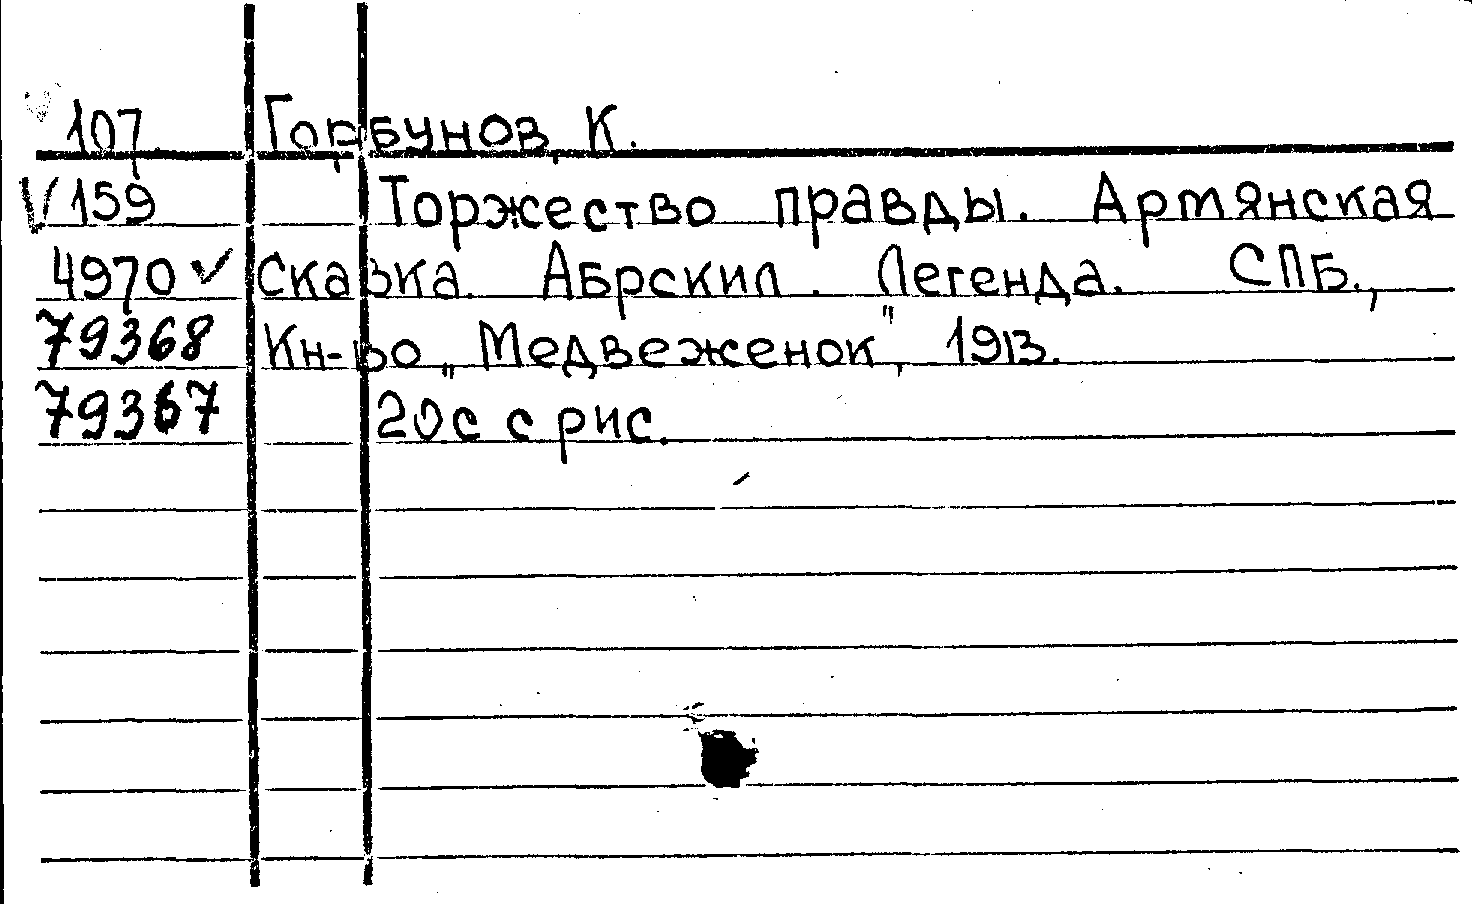 107 Горбунов, К.
V 159 Торжество правды. Артянская
4970 ✓ Сказка. Абрскил. Легенда. СПБ.,
79368 Кн-во „Медвеженок", 1913.
79367 20с с рис.